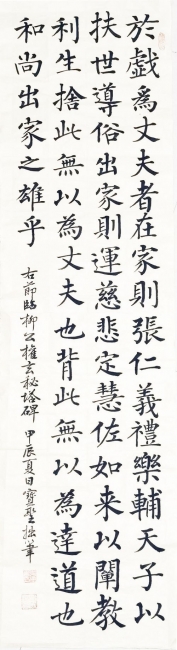 於戲為丈夫者在家則張仁義禮樂輔天子以
扶世導俗出家則運慈悲定慧佐如来以闡教
利生捨此無以為丈夫也背此無以為達道也
和尚出家之雄乎
右節臨柳公權玄秘塔碑 甲辰夏日寶聖拙筆